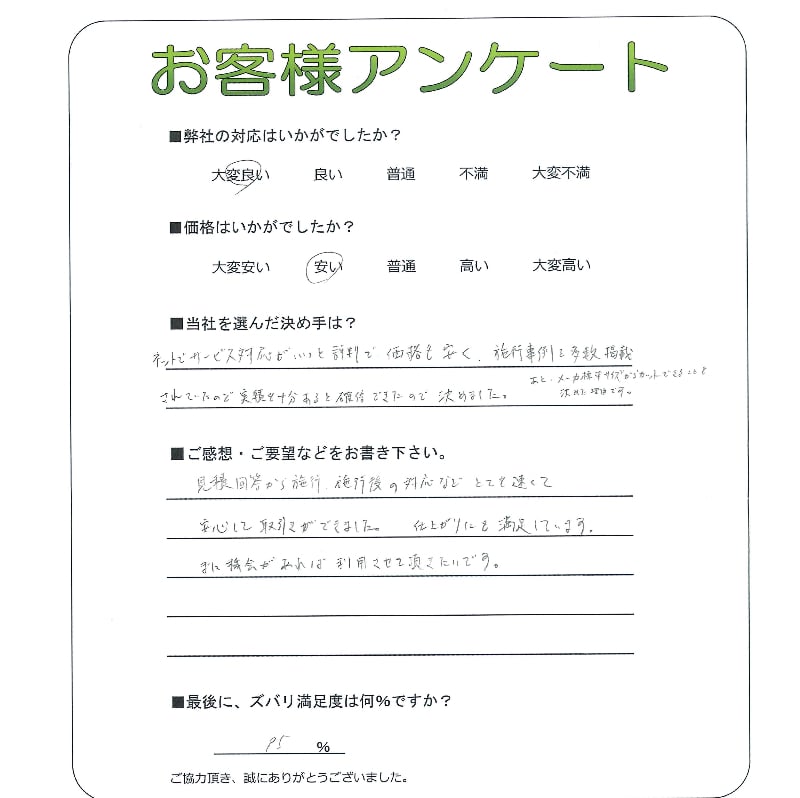 お客様アンケート
■弊社の対応はいかがでしたか？
大変良い 良い 普通 不満 大変不満
■価格はいかがでしたか？
大変安い 安い 普通 高い 大変高い
■当社を選んだ決め手は？
ネットでサービス対応がいいと評判で価格も安く、施行事例も多数掲載
されていたので実績も十分あると確信できたので決めました。
あと、メーカ標準サイズからカットできることも
決めた理由です。
■ご感想・ご要望などをお書き下さい。
見積回答から施行、施行後の対応などとても速くて
安心して取引きができました。 仕上がりにも満足しています。
また機会があれば利用させて頂きたいです。
■最後に、ズバリ満足度は何%ですか？
95 %
ご協力頂き、誠にありがとうございました。